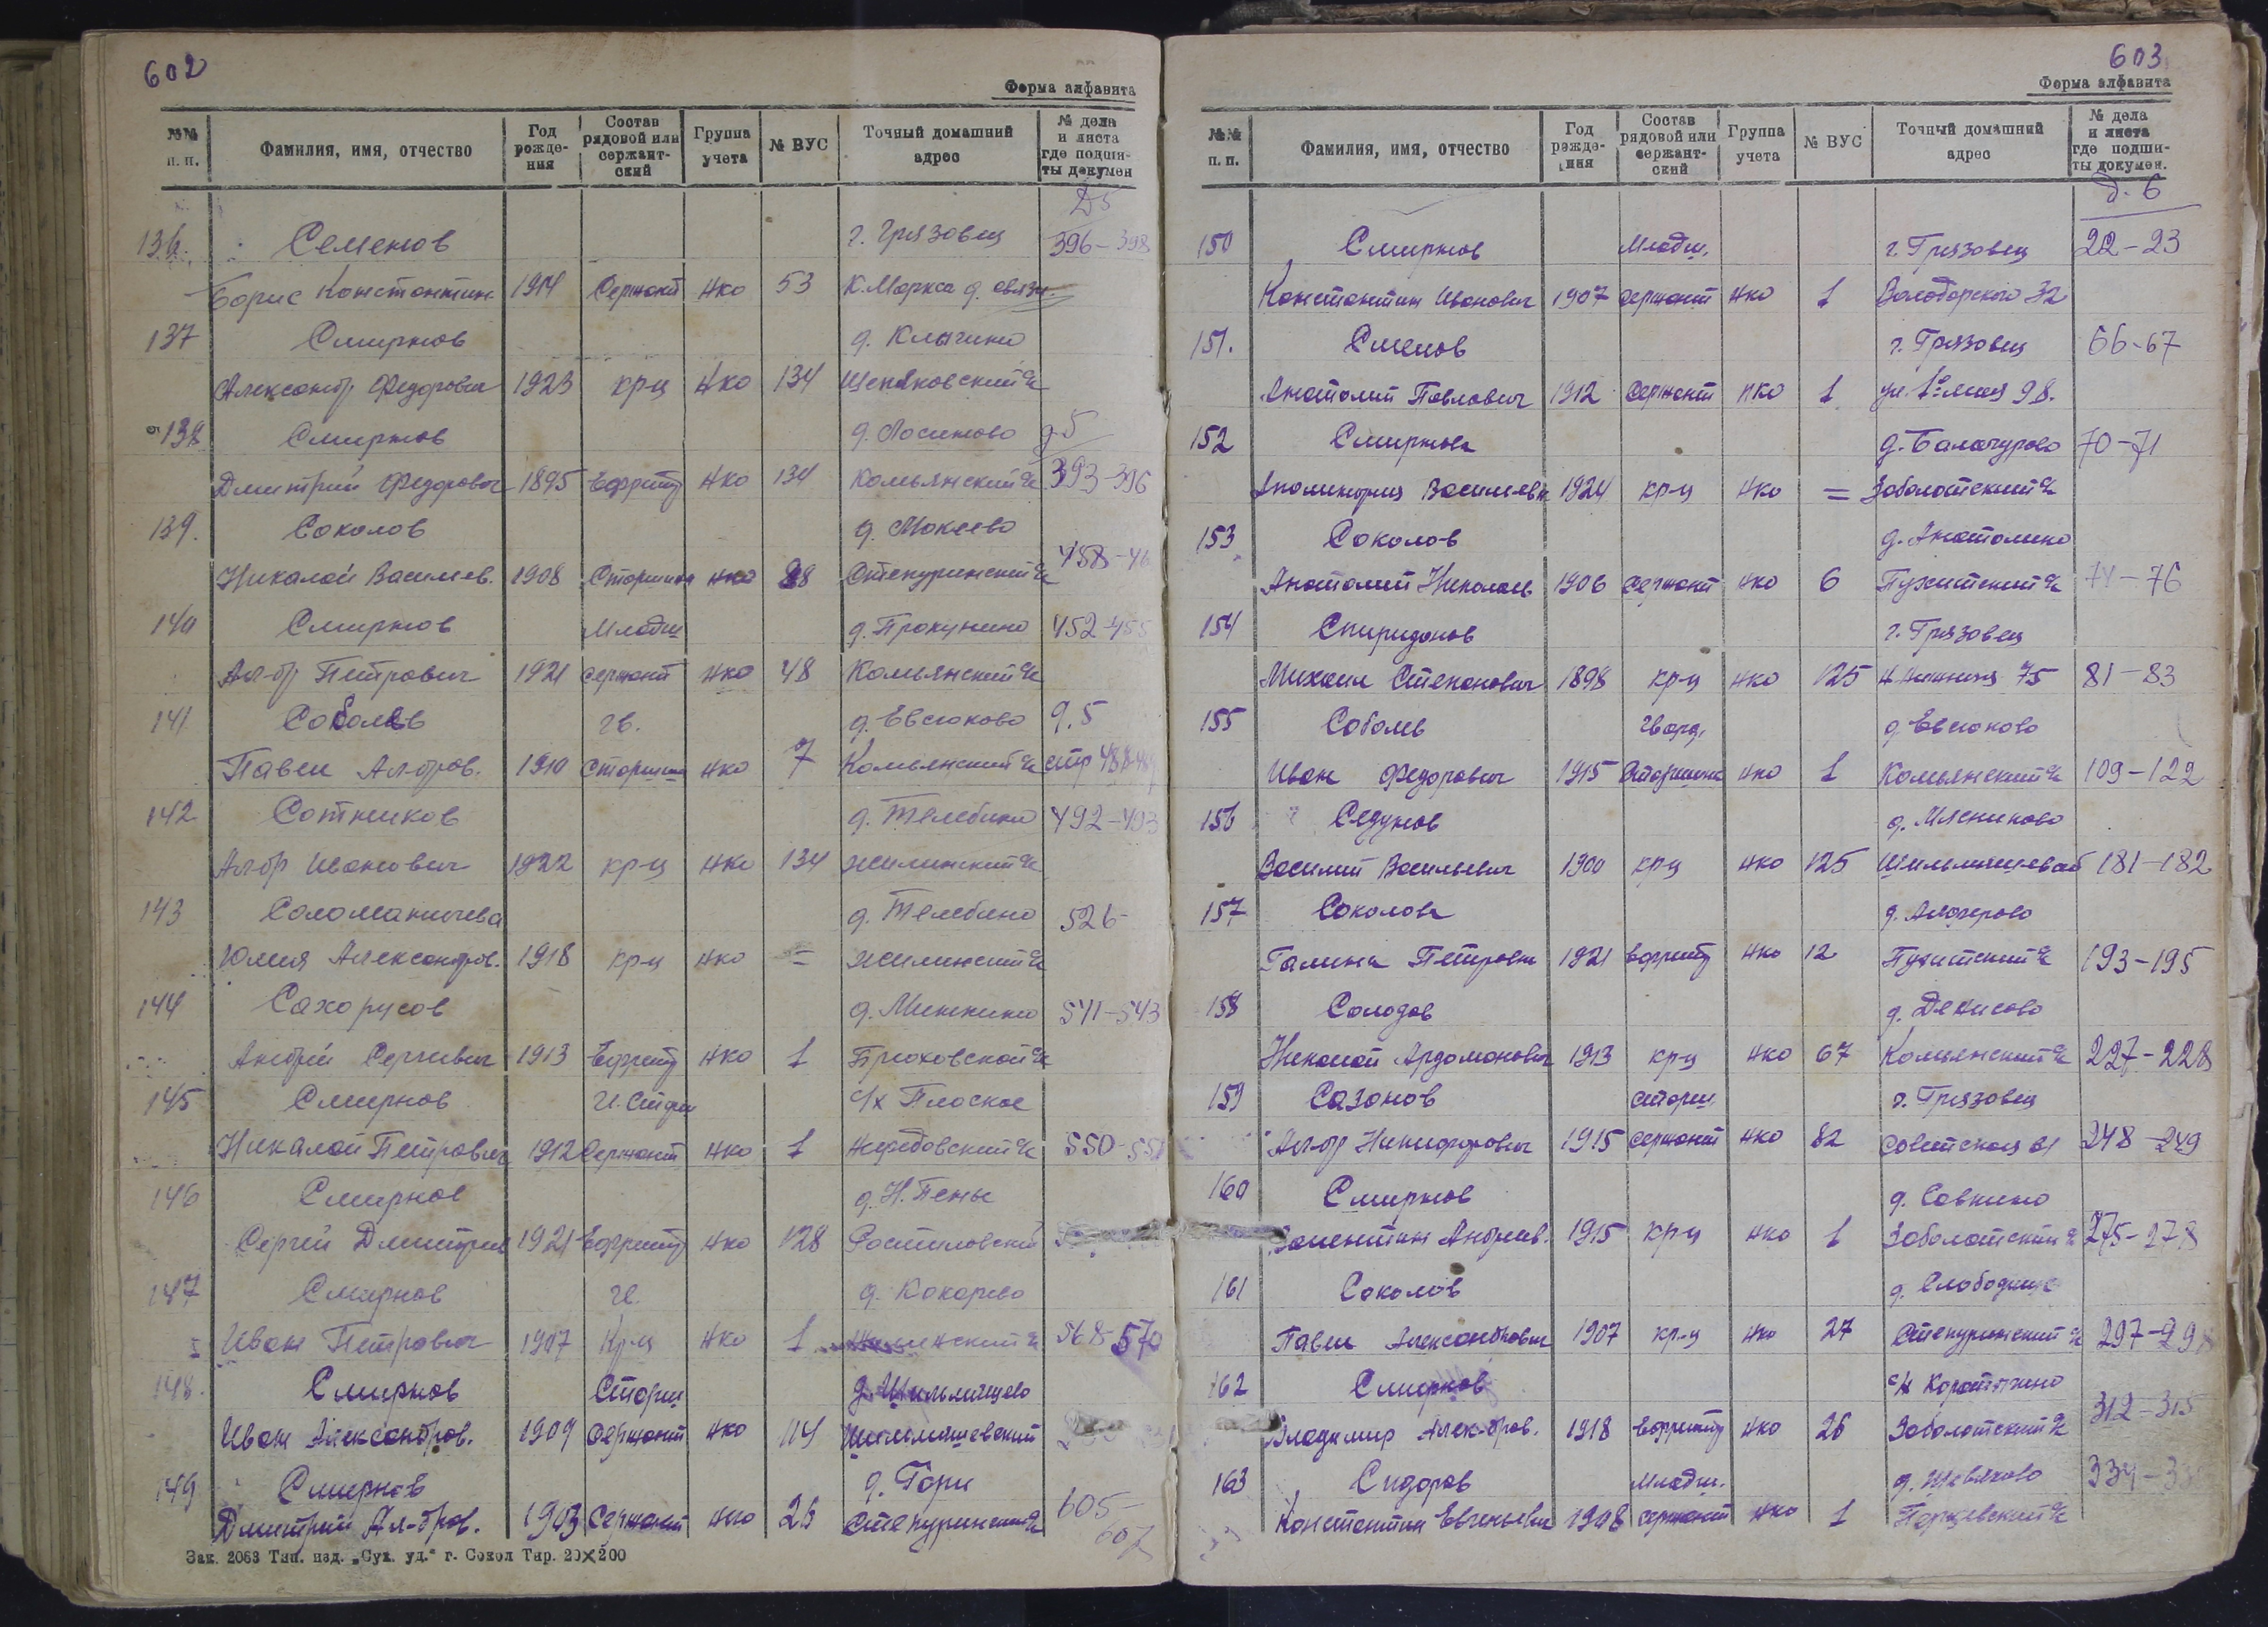 602
Форма алфавита
№№ п. п. Фамилия, имя, отчество Год рожде- ния Состав рядовой или сержант- ский Группа учета № ВУС Точный домашний адрес № дела и листа где подши- ты докумен
Д5
136. Семенов г. Грязовец 396-398
Борис Константин. 1914 Сержант нко 53 К.Маркса д. связи.
137 Смирнов д. Клычино
Александр Федорович 1923 кр-ц нко 134
138 Смирнов д. Лосиково д-5
Дмитрий Федорович 1895 Ефрейт нко 134 Комьянский с/с 393-396
139. Соколов д. Мокеево
Николай Васильев. 1908 Старшина нко Степуринский с/с 458-46
140 Смирнов Младш д. Прокунино 452-455
Ал-др Петрович 1921 сержант нко 48 Комьянский с/с
141 Соболев гв. д. Евсюково д.5
Павел Ал-дров. 1910 Старшина нко 7 Комьянский с/с стр 488-489
142 Сотников д. Телебино 492-493
Ал-др Иванович 1922 кр-ц нко 134 Жилинский с/с
143 Соломаничева д. Телебино 526-
Юлия Александров. 1918 кр-ц нко = Жилинский с/с
144 Сахорусов д. Минкино 541-543
Андрей Сергиевич 1913 Ефрейт нко 1 Брюховской с/с
145 Смирнов с/х Плоское
Николай Петрович 1912 Сержант нко 1 Нефедовский с/с 550-551
146 Смирнов д. Н. Пены
Сергей Дмитриев 1921 Ефрейт нко 128 Ростиловский
147 Смирнов гв. д. Кокорево
Иван Петрович 1907 Кр-ц нко 1 568-570
148. Смирнов Старш д. Шильмяшево
Иван Александров. 1909 Сержант нко 114 Шильмяшевский
149 Смирнов д. Гори
Дмитрий Ал-дров. 1903 Сержант нко 26 Степуринский с/с 605-607
Зак. 2063 Тип. изд. „Сух. уд.“ г. Сокол Тир. 20×200
603
Форма алфавита
№№ п. п. Фамилия, имя, отчество Год рожде- ния Состав рядовой или сержант- ский Группа учета № ВУС Точный домашний адрес № дела и листа где подши- ты докумен.
д. 6
150 Смирнов Младш. г. Грязовец 22-23
Константин Иванович 1907 сержант нко 1 Володарского 32
151. Смелов г. Грязовец 66-67
Анатолий Павлович 1912 Сержант нко 1 98.
152 Смирнова д. Балагурово 70-71
Аполинария Васильевн 1924 кр-ц нко = Заболотский с/с
153 Соколов д. Анатолино
Анатолий Николаев 1906 Сержант нко 6 74-76
154 Спиридонов г. Грязовец
Михаил Степанович 1898 кр-ц нко 125 75 81-83
155 Соболев Гвард. д. Евсюково
Иван Федорович 1915 Старшина нко 1 Комьянский с/с 109-122
156 Седунов д. Мясниково
Василий Васильевич 1900 кр-ц нко 125 181-182
157 Соколова
Галина Петровна 1921 ефрейт нко 12 193-195
158 Солодов д. Денисово
Николай Ардомонович 1913 кр-ц нко 67 Комьянский с/с 227-228
159 Сазонов старш. г. Грязовец
Ал-др Никифорович 1915 сержант нко 82 Советская 248-249
160 Смирнов д. Савкино
Валентин Андреев. 1915 кр-ц нко 1 Заболотский с/с 275-278
161 Соколов д. Слободище
Павел Александрович 1907 кр-ц нко 27 Степуринский с/с 297-298
162 Смирнов с/х Коротыгино
Владимир Алек-дров. 1918 Ефрейт нко 26 Заболотский с/с 312-315
163 Сидоров Младш. д. Шевяково
Константин Евгеньевич 1908 сержант нко 1